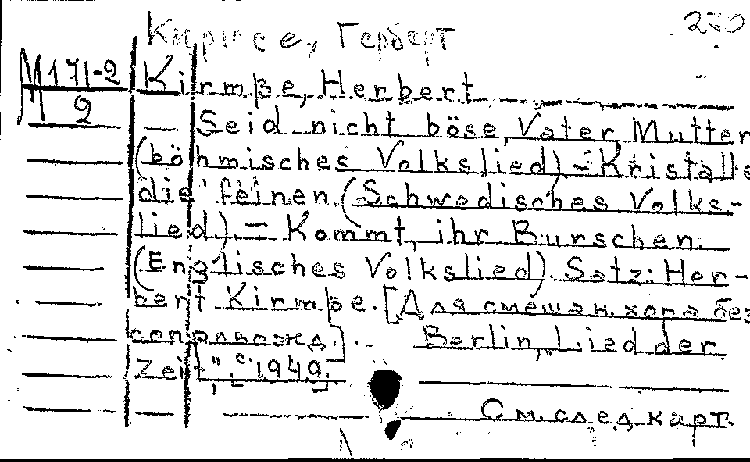 Кирмсе, Герберт
270
М171-2
2
Kirmße, Herbert
Seid nicht böse, Vater, Mutter
(böhmisches Volkslied) – Kristalle
die feinen. (Schwedisches Volks-
lied). – Kommt, ihr Burschen.
(Englisches Volkslied). Satz: Her-
bert Kirmße. [Для смешан. хора без
сопровожд.]. Berlin, "Lied der
Zeit", c. 1949.
См. след. карт.